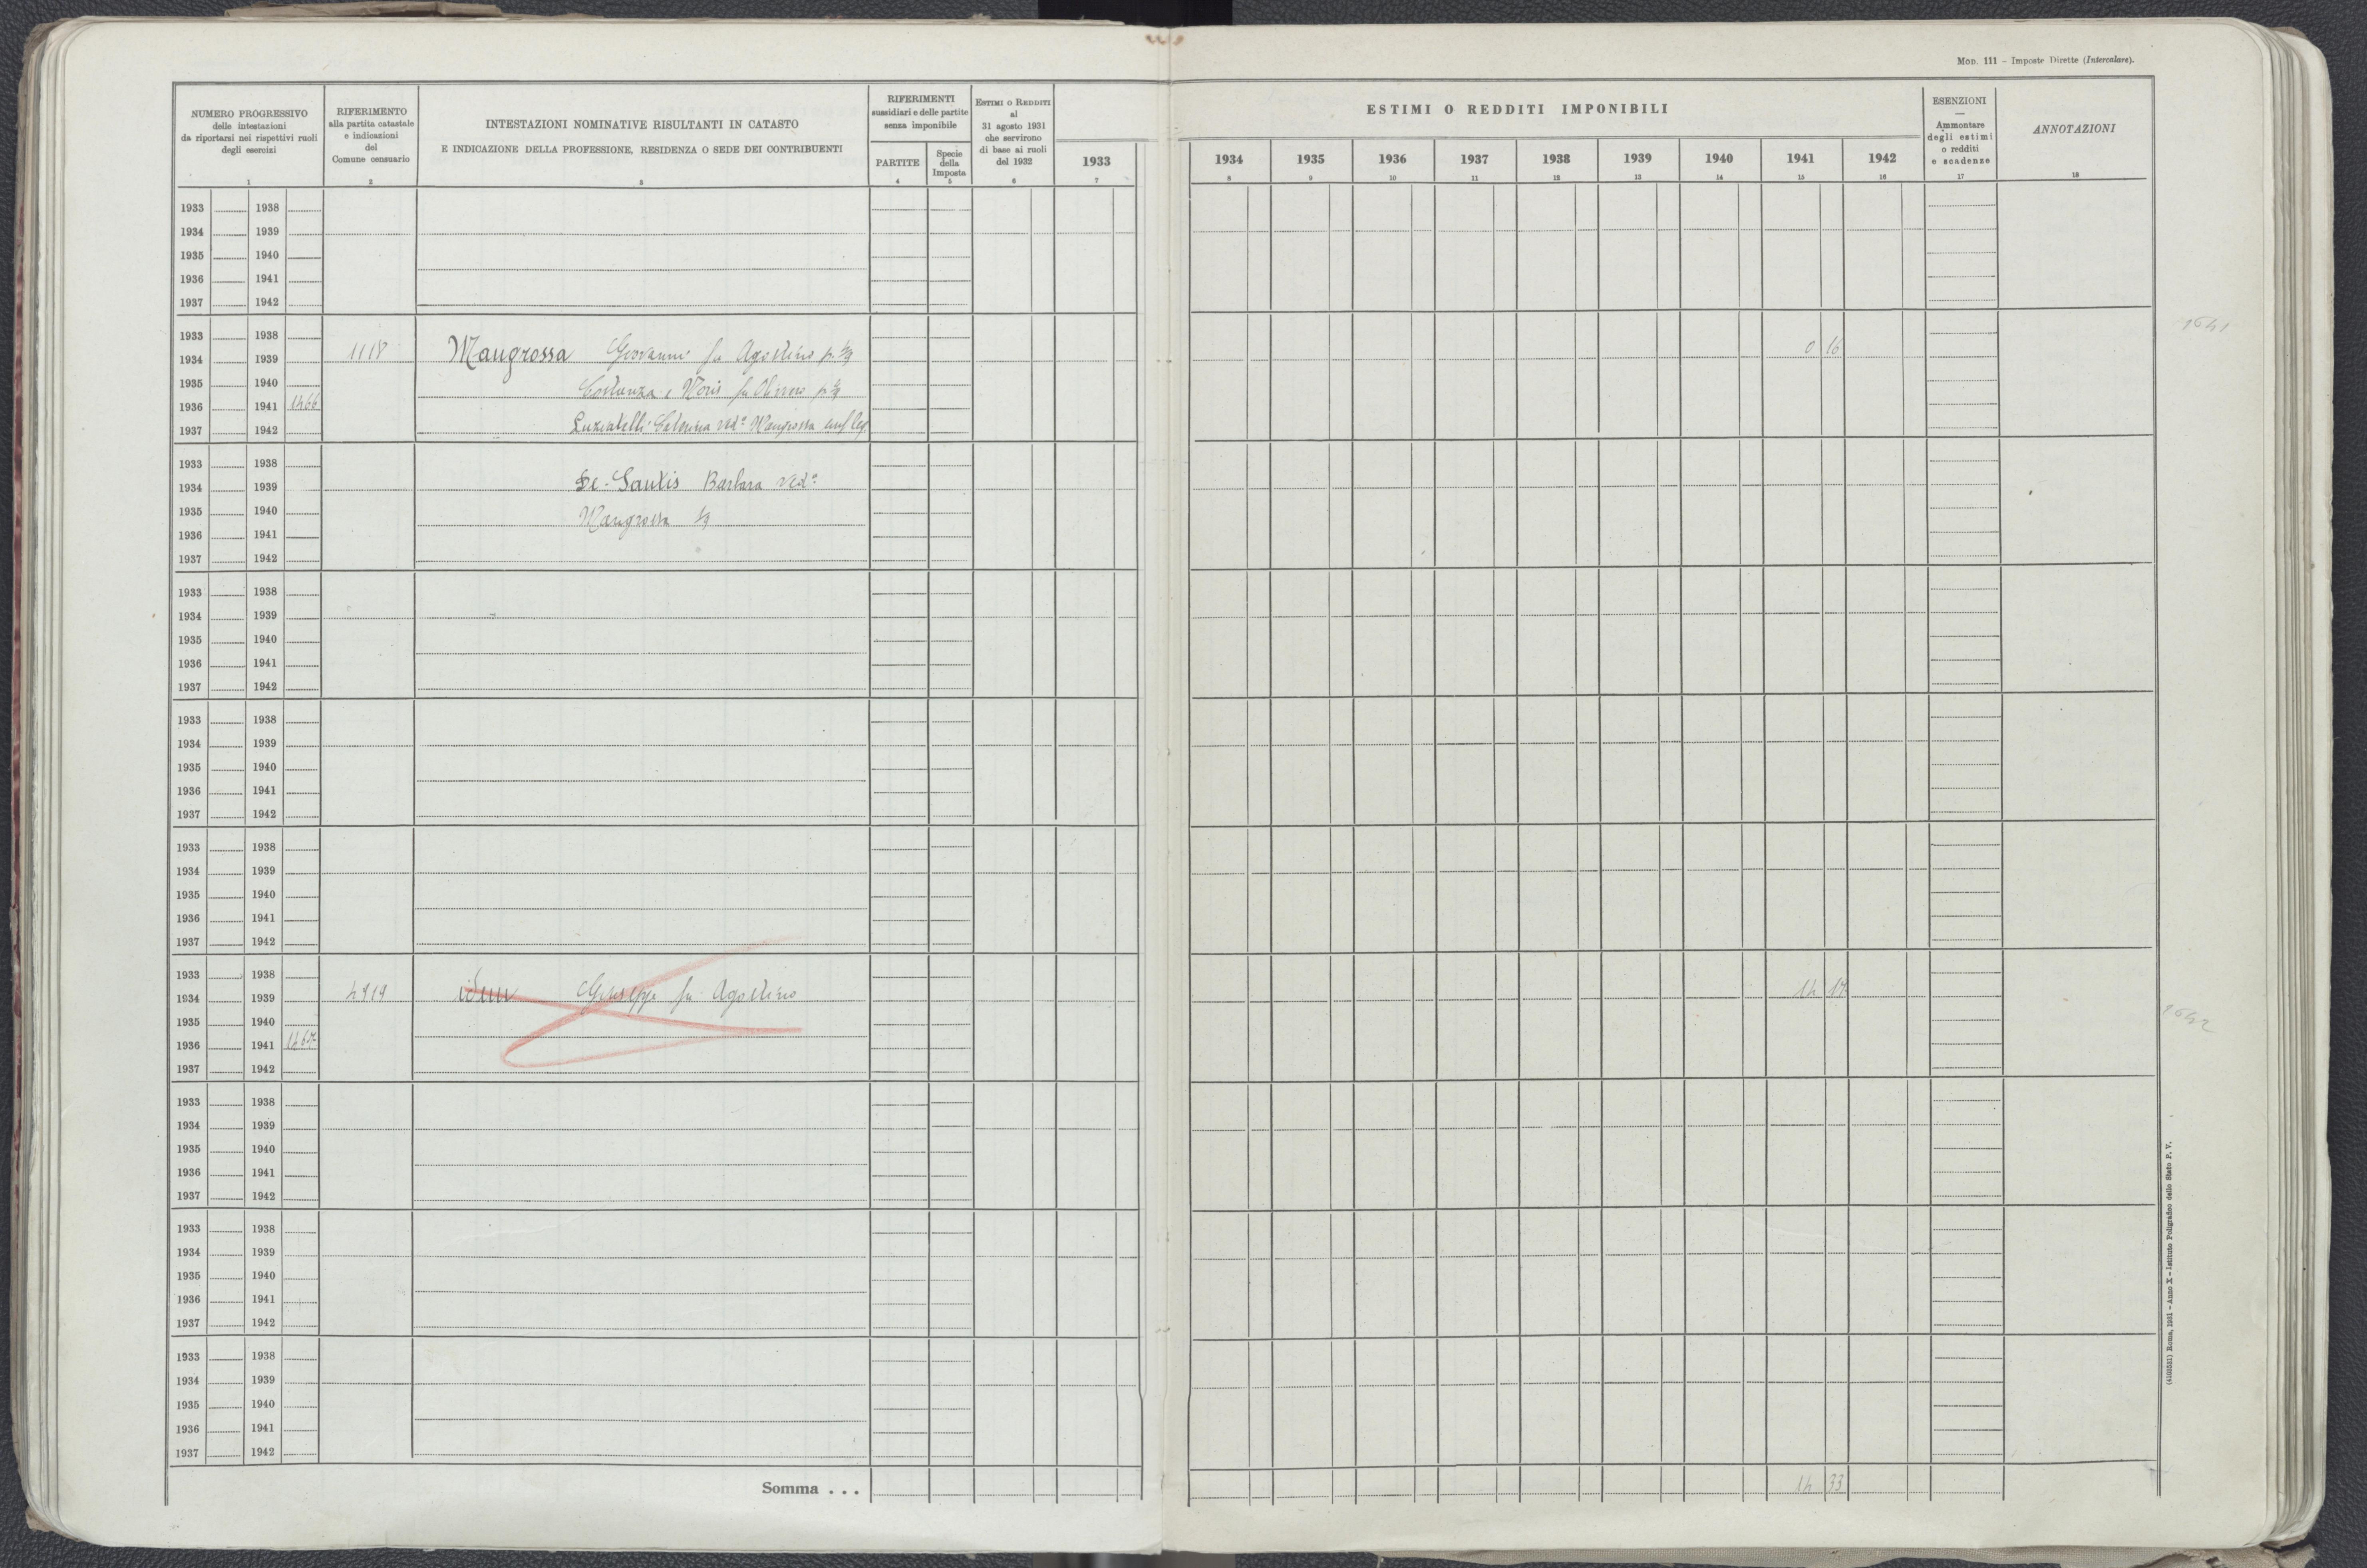 Mod. 111 - Imposte Dirette (Intercalare).
NUMERO PROGRESSIVO
delle intestazioni
da riportarsi nei rispettivi ruoli
degli esercizi
1
RIFERIMENTO
alla partita catastale
e indicazioni
del
Comune censuario
2
INTESTAZIONI NOMINATIVE RISULTANTI IN CATASTO
E INDICAZIONE DELLA PROFESSIONE, RESIDENZA O SEDE DEI CONTRIBUENTI
3
RIFERIMENTI
sussidiari e delle partite
senza imponibile
PARTITE
4
Specie
della
Imposta
5
Estimi o Redditi
al
31 agosto 1931
che servirono
di base ai ruoli
del 1932
6
1933
7
ESTIMI O REDDITI IMPONIBILI
1934 1935 1936 1937 1938 1939 1940 1941 1942
8 9 10 11 12 13 14 15 16
ESENZIONI
—
Ammontare
degli estimi
o redditi
e scadenze
17
ANNOTAZIONI
18
1933 1938
1934 1939
1935 1940
1936 1941
1937 1942
1933 1938
1934 1939 1118 Mangrossa Giovanni fu Agostino 0 16
1935 1940 Costanza e fu
1936 1941 1466
1937 1942 Caterina ved. Mangrossa
1641
1933 1938
1934 1939 De-Santis Barbara ved.
1935 1940 Mangrossa
1936 1941
1937 1942
1933 1938
1934 1939
1935 1940
1936 1941
1937 1942
1933 1938
1934 1939
1935 1940
1936 1941
1937 1942
1933 1938
1934 1939
1935 1940
1936 1941
1937 1942
1933 1938
1934 1939 4919 idem Giuseppe fu Agostino 14 17
1935 1940
1936 1941 1467
1937 1942
1642
1933 1938
1934 1939
1935 1940
1936 1941
1937 1942
1933 1938
1934 1939
1935 1940
1936 1941
1937 1942
1933 1938
1934 1939
1935 1940
1936 1941
1937 1942
Somma . . . 14 33
(4103531) Roma, 1931 - Anno X - Istituto Poligrafico dello Stato P. V.